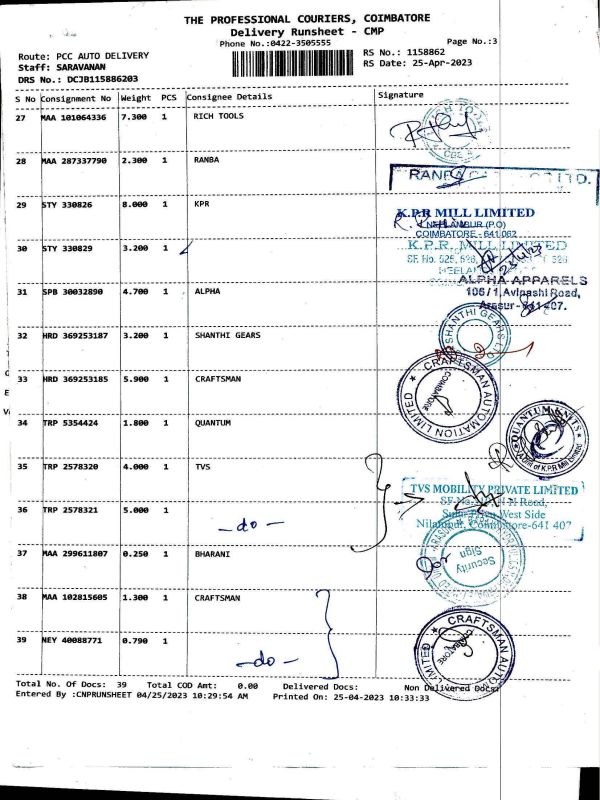 THE PROFESSIONAL COURIERS, COIMBATORE
Delivery Runsheet - CMP
Phone No.:0422-3505555
Page No.:3
Route: PCC AUTO DELIVERY
RS No.: 1158862
Staff: SARAVANAN
RS Date: 25-Apr-2023
DRS No.: DCJB115886203
S No Consignment No Weight PCS Consignee Details Signature
27 MAA 101064336 7.300 1 RICH TOOLS
28 MAA 287337790 2.300 1 RANBA
RANBA
LTD.
29 STY 330826 8.000 1 KPR
K.P.R MILL LIMITED
NEELAMBUR (P.O)
COIMBATORE - 641 062
30 STY 330829 3.200 1
K.P.R. MILL LIMITED
SF. No. 525, 526,
31 SPB 30032890 4.700 1 ALPHA
ALPHA APPARELS
106/1, Avinashi Road,
Arasur - 641 407.
32 HRD 369253187 3.200 1 SHANTHI GEARS
SHANTHI GEARS LTD
33 HRD 369253185 5.900 1 CRAFTSMAN
CRAFTSMAN AUTOMATION LIMITED
COIMBATORE
34 TRP 5354424 1.800 1 QUANTUM
QUANTUM KNITS
A Unit of K.P.R Mill Limited
35 TRP 2578320 4.000 1 TVS
TVS MOBILITY PRIVATE LIMITED
West Side
Coimbatore-641 407
36 TRP 2578321 5.000 1
- do -
37 MAA 299611807 0.250 1 BHARANI
Security
Sign
38 MAA 102815605 1.300 1 CRAFTSMAN
39 NEY 40088771 0.790 1
- do -
CRAFTSMAN AUTOM
LIMITED
Total No. Of Docs: 39 Total COD Amt: 0.00 Delivered Docs: Non Delivered Docs:
Entered By :CNPRUNSHEET 04/25/2023 10:29:54 AM Printed On: 25-04-2023 10:33:33